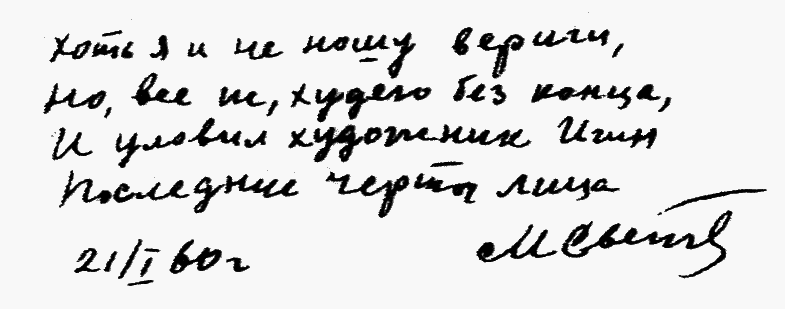 Хоть я и не ношу вериги,
Но, все ж, худею без конца,
И уловил художник Игин
Последние черты лица
21/I 60 г
М Светлов